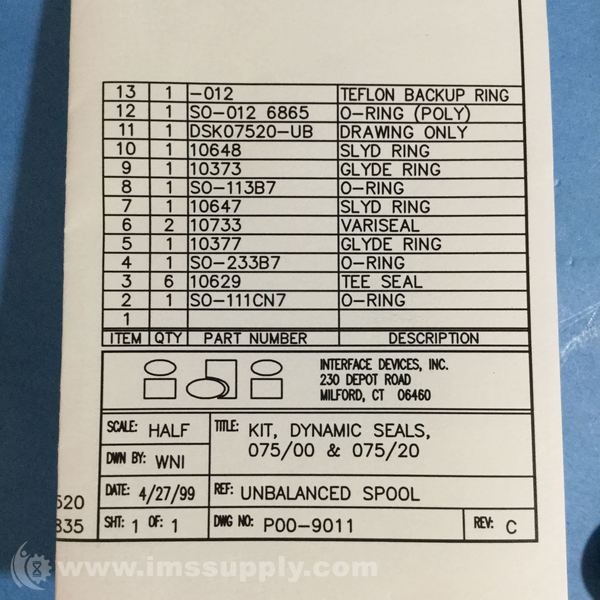 13 1 -012 TEFLON BACKUP RING
12 1 SO-012 6865 O-RING (POLY)
11 1 DSK07520-UB DRAWING ONLY
10 1 10648 SLYD RING
9 1 10373 GLYDE RING
8 1 SO-113B7 O-RING
7 1 10647 SLYD RING
6 2 10733 VARISEAL
5 1 10377 GLYDE RING
4 1 SO-233B7 O-RING
3 6 10629 TEE SEAL
2 1 SO-111CN7 O-RING
1
ITEM QTY PART NUMBER DESCRIPTION
INTERFACE DEVICES, INC.
230 DEPOT ROAD
MILFORD, CT 06460
SCALE: HALF
TITLE: KIT, DYNAMIC SEALS,
075/00 & 075/20
DWN BY: WNI
DATE: 4/27/99
REF: UNBALANCED SPOOL
SHT: 1 OF: 1
DWG NO: P00-9011
REV: C
520
835
www.imssupply.com